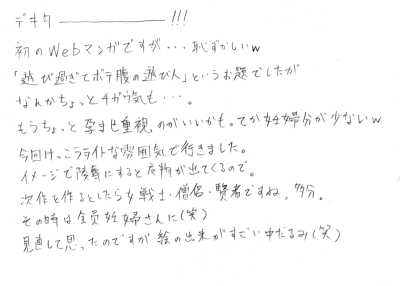 デキタ――――――!!!
初のWebマンガですが・・・恥ずかしいw
「遊び過ぎてボテ腹の遊び人」というお題でしたが
なんかちょっとチガう気も・・・。
もうちょっと孕ませ重視のがいいかも。てか妊婦分が少ないw
今回けっこうライトな雰囲気で行きました。
イメージで陵辱にすると反動が出てくるので。
次作を作るとしたら女戦士・僧侶・賢者ですね。多分。
その時は全員妊婦さんに(笑)
見直して思ったのですが絵の出来がすごい中だるみ(笑)